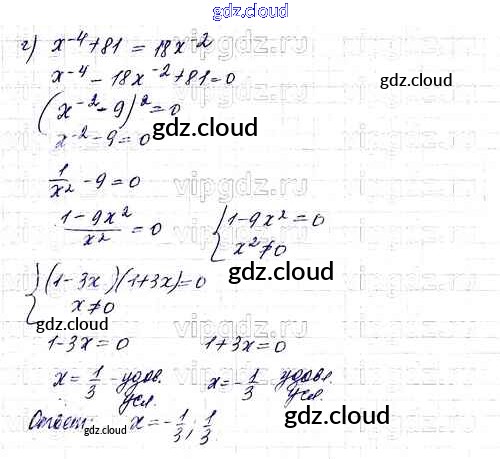 gdz.cloud
г) x⁻⁴ + 81 = 18x⁻²
x⁻⁴ - 18x⁻² + 81 = 0
gdz.cloud
(x⁻² - 9)² = 0
gdz.cloud
x⁻² - 9 = 0
1/x² - 9 = 0
(1 - 9x²)/x² = 0 { 1 - 9x² = 0
x² ≠ 0
gdz.cloud
{ (1 - 3x)(1 + 3x) = 0
x ≠ 0
gdz.cloud
1 - 3x = 0 1 + 3x = 0
x = 1/3 - удов. усл. x = -1/3 удовл. усл.
gdz.cloud
gdz.cloud
Ответ: x = -1/3; 1/3
gdz.cloud